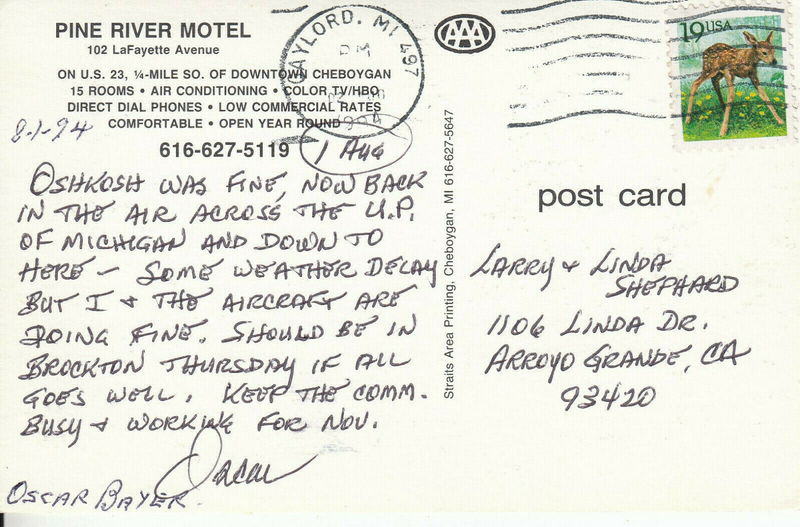 PINE RIVER MOTEL
102 LaFayette Avenue
ON U.S. 23, ¼-MILE SO. OF DOWNTOWN CHEBOYGAN
15 ROOMS • AIR CONDITIONING • COLOR TV/HBO
DIRECT DIAL PHONES • LOW COMMERCIAL RATES
COMFORTABLE • OPEN YEAR ROUND
616-627-5119
8-1-94
1 AUG
OSHKOSH WAS FINE, NOW BACK
IN THE AIR ACROSS THE U.P.
OF MICHIGAN AND DOWN TO
HERE - SOME WEATHER DELAY
BUT I & THE AIRCRAFT ARE
DOING FINE. SHOULD BE IN
BROCKTON THURSDAY IF ALL
GOES WELL. KEEP THE COMM.
BUSY & WORKING FOR NOV.
Oscar
OSCAR BAYER.
GAYLORD, MI 497
PM
1994
AAA
19USA
Straits Area Printing, Cheboygan, MI 616-627-5647
post card
LARRY & LINDA
SHEPHARD
1106 LINDA DR.
ARROYO GRANDE, CA
93420